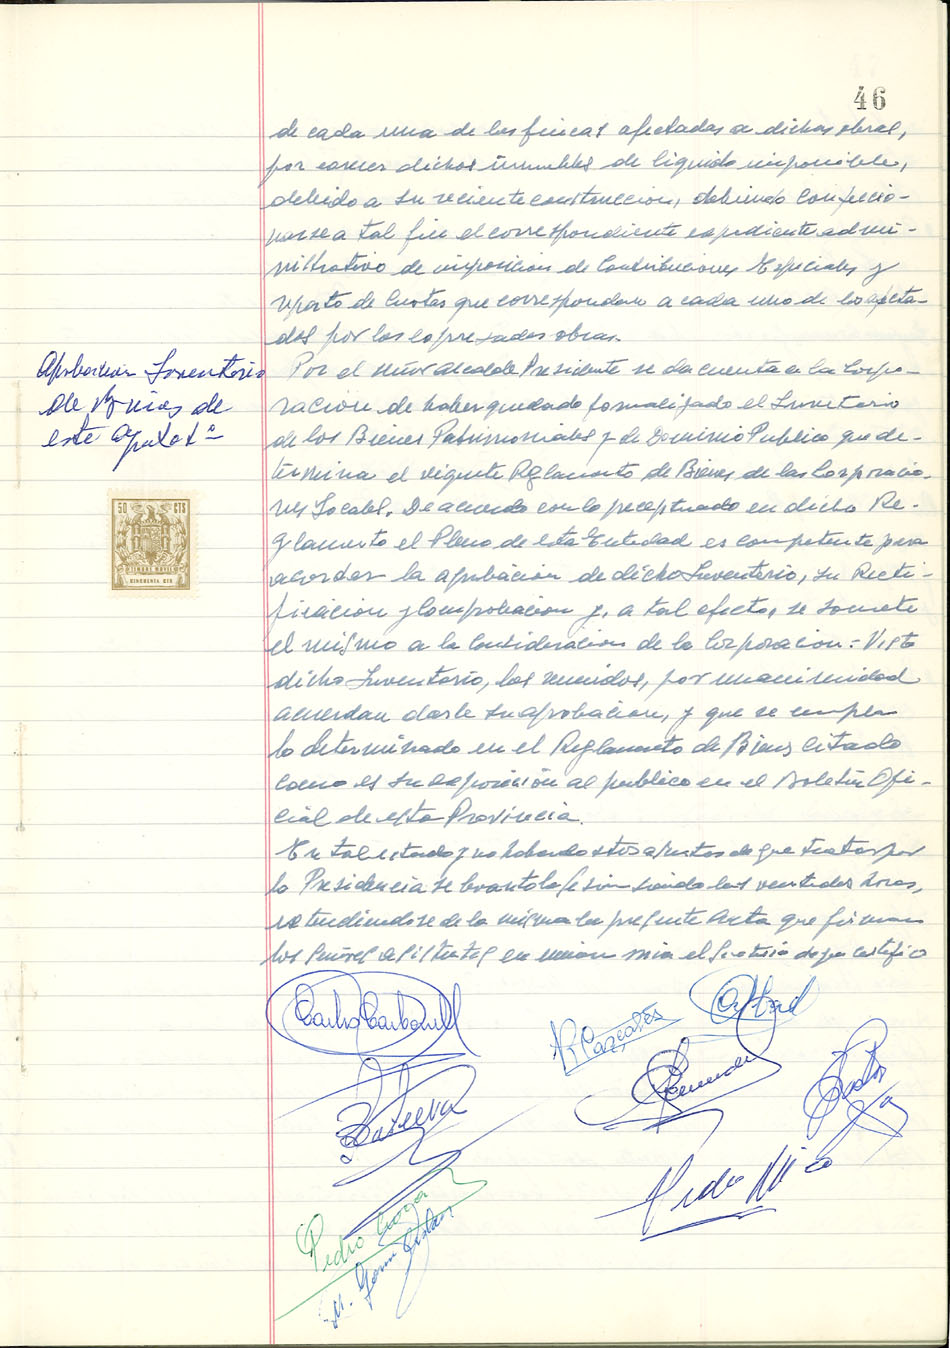 46
de cada una de las fincas afectadas a dichas obras,
por carecer dichos inmuebles de liquido imponible,
debido a su reciente construccion, debiendo confeccio-
narse a tal fin el correspondiente expediente admi-
nistrativo de imposicion de Contribuciones Especiales y
reparto de Cuotas que correspondan a cada uno de los afecta-
dos por las expresadas obras.
Aprobacion Inventario
de Bienes de
este Ayuntatº
50 CTS
TIMBRE MOVIL
CINCUENTA CTS
Por el señor Alcalde Presidente se da cuenta a la Corpo-
racion de haber quedado formalizado el Inventario
de los Bienes Patrimoniales y de Dominio Publico que de-
termina el vigente Reglamento de Bienes de las Corporacio-
nes Locales. De acuerdo con lo preceptuado en dicho Re-
glamento el Pleno de esta Entidad es competente para
acordar la aprobacion de dicho Inventario, su Recti-
ficacion y Comprobacion y, a tal efecto, se somete
el mismo a la consideracion de la Corporacion: Visto
dicho Inventario, los reunidos, por unanimidad
acuerdan darle su aprobacion, y que se cumpla
lo determinado en el Reglamento de Bienes citado
como es su exposición al publico en el Boletin Ofi-
cial de esta Provincia.
En tal estado y no habiendo otros asuntos de que tratar por
la Presidencia se levanto la sesion siendo las veintedos horas,
extendiendose de la misma la presente Acta que firman
los señores asistentes en union mia el Secretario de que certifico
Carlos Carbonell
R Cazcarés
Pastor
Pedro Micó
Pedro
M.